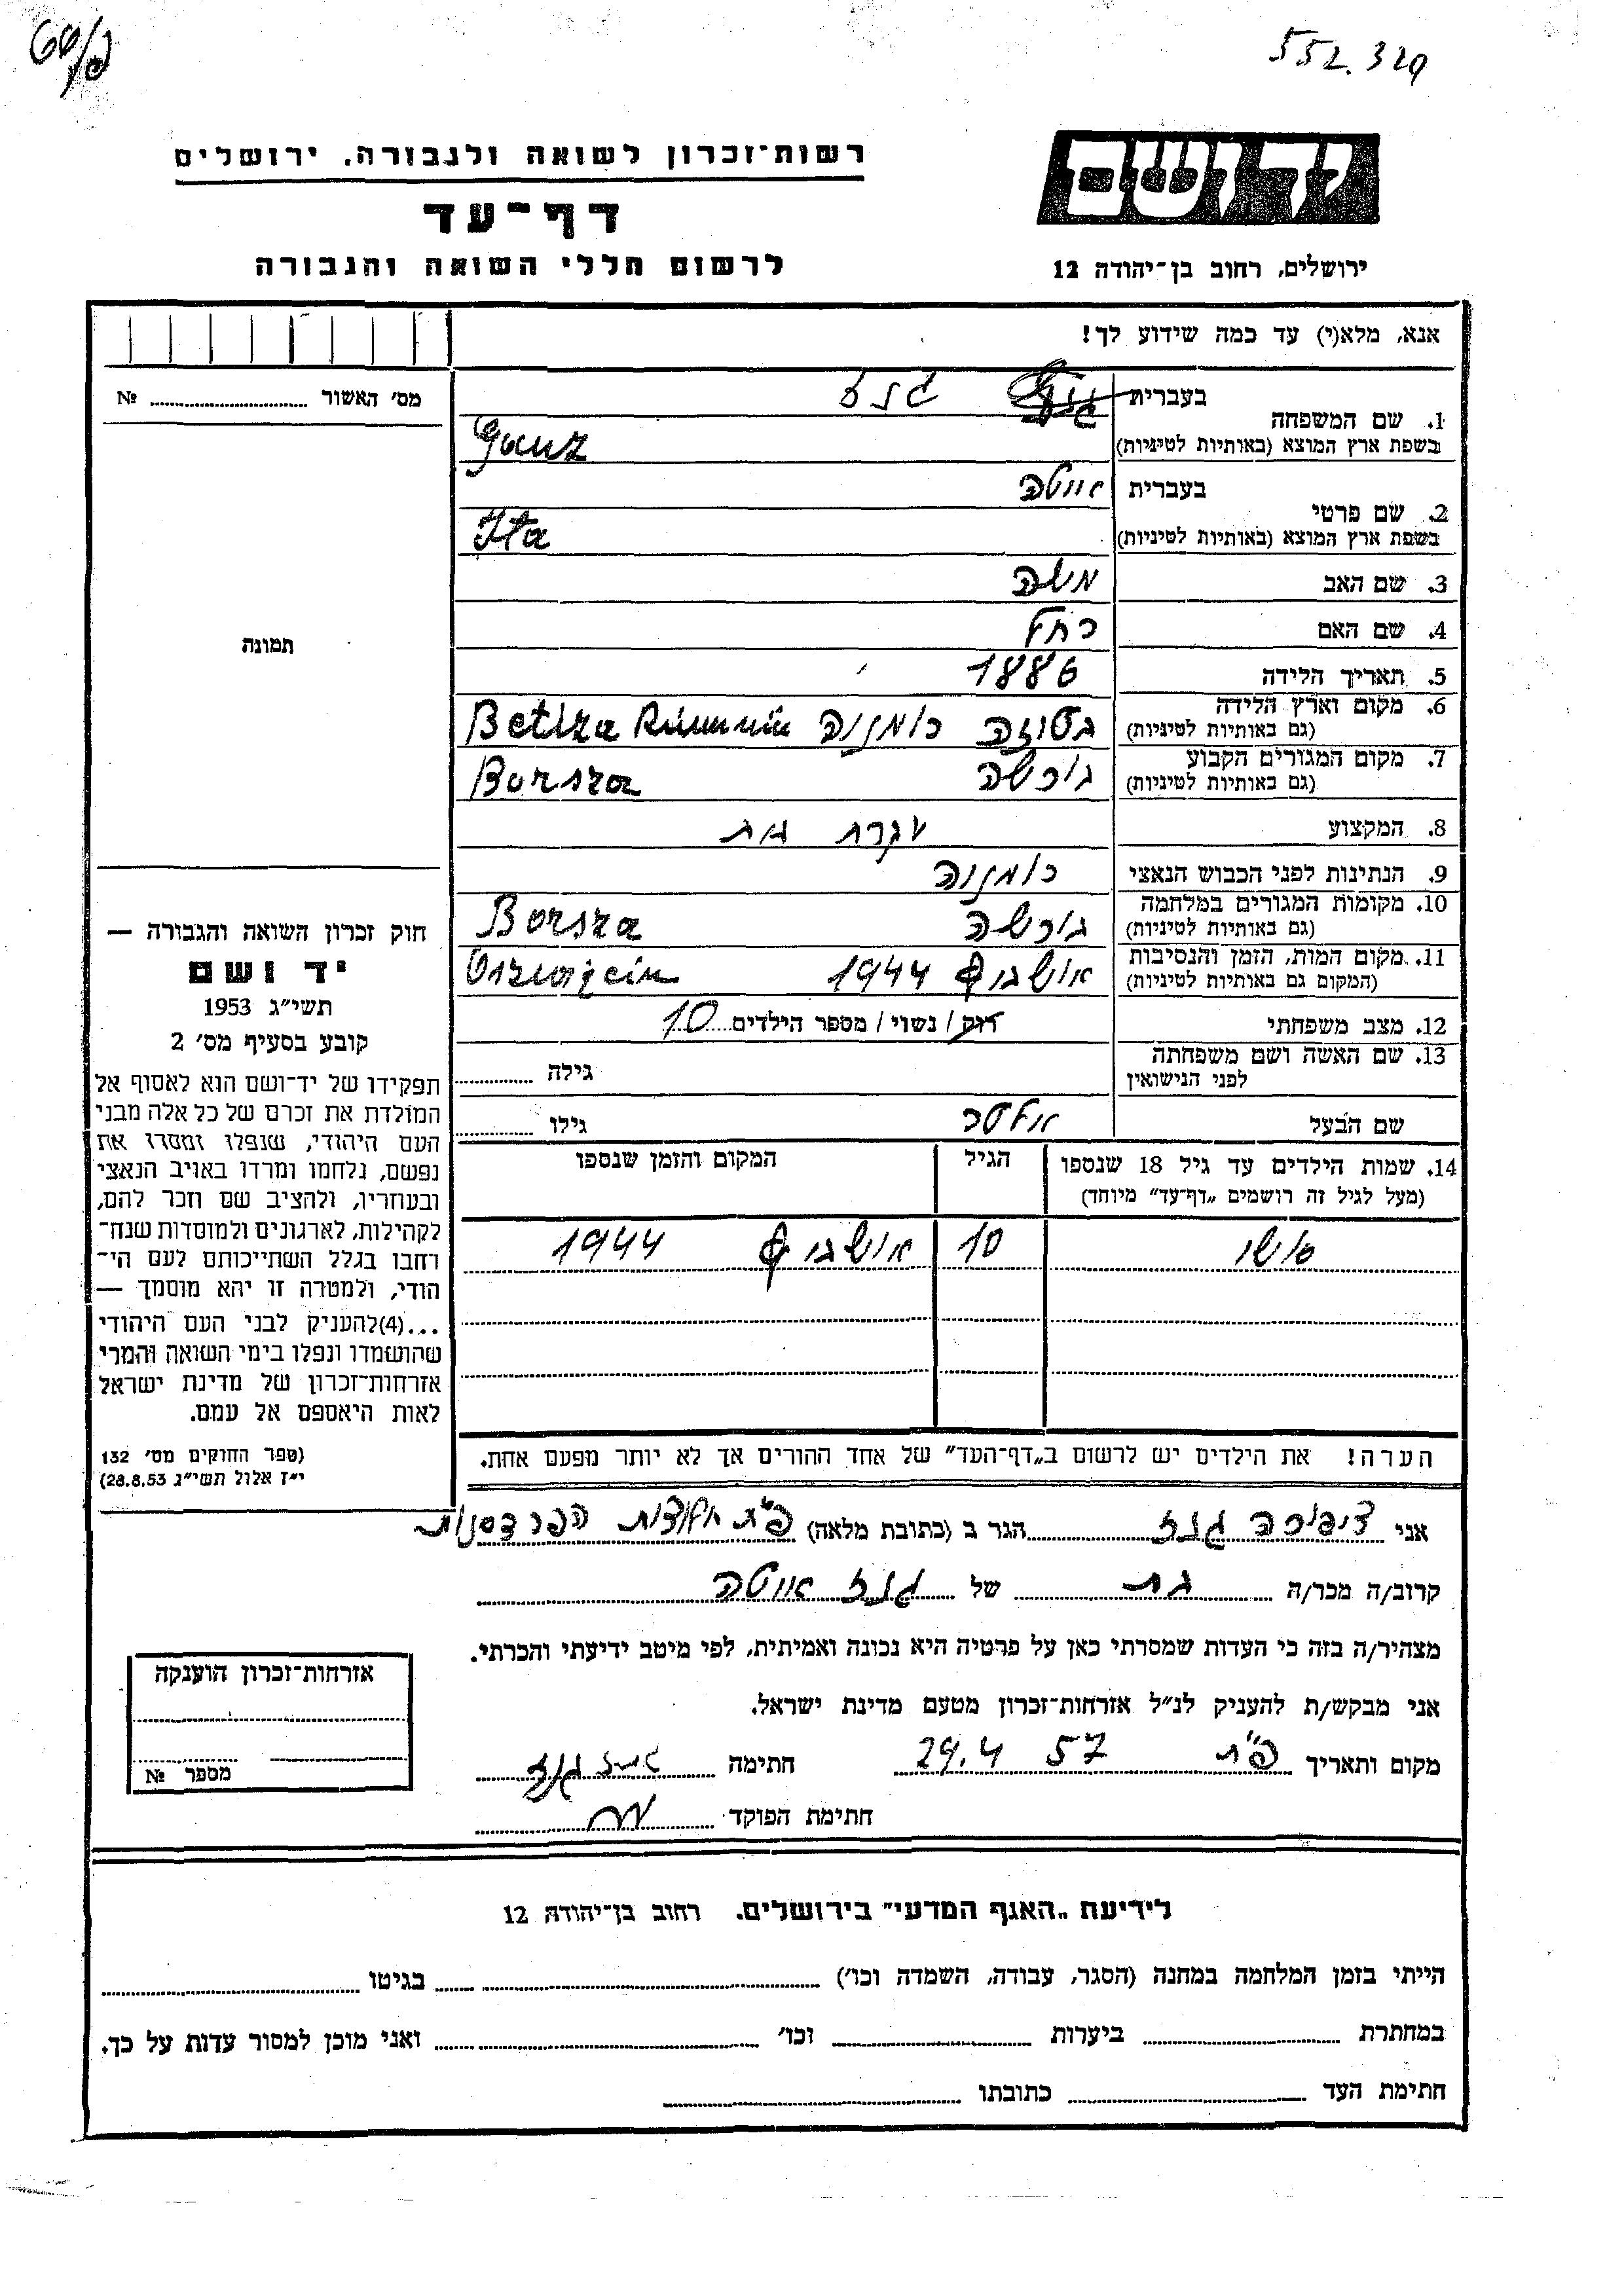 552.329
רשות־זכרון לשואה ולגבורה, ירושלים
דף־עד
לרשום חללי השואה והגבורה
יד ושם
ירושלים, רחוב בן־יהודה 12
אנא, מלא(י) עד כמה שידוע לך!
מס׳ האשור ........ №
תמונה
1. שם המשפחה בעברית גנז
בשפת ארץ המוצא (באותיות לטיניות) Ganz
2. שם פרטי בעברית איטה
בשפת ארץ המוצא (באותיות לטיניות) Ita
3. שם האב משה
4. שם האם רחל
5. תאריך הלידה 1886
6. מקום וארץ הלידה
(גם באותיות לטיניות) רומניה Betlza
7. מקום המגורים הקבוע
(גם באותיות לטיניות) בורשה Borsza
8. המקצוע עקרת בית
9. הנתינות לפני הכבוש הנאצי רומניה
10. מקומות המגורים במלחמה
(גם באותיות לטיניות) בורשה Borsza
11. מקום המות, הזמן והנסיבות
(המקום גם באותיות לטיניות) אושביץ 1944
12. מצב משפחתי רוק / נשוי / מספר הילדים 10
13. שם האשה ושם משפחתה
לפני הנישואין גילה
שם הבעל אלטר גילו
14. שמות הילדים עד גיל 18 שנספו
(מעל לגיל זה רושמים „דף־עד” מיוחד)
הגיל
המקום והזמן שנספו
10 אושביץ 1944
הערה! את הילדים יש לרשום ב„דף־העד” של אחד ההורים אך לא יותר מפעם אחת.
חוק זכרון השואה והגבורה —
יד ושם
תשי״ג 1953
קובע בסעיף מס׳ 2
תפקידו של יד־ושם הוא לאסוף אל
המולדת את זכרם של כל אלה מבני
העם היהודי, שנפלו ומסרו את
נפשם, נלחמו ומרדו באויב הנאצי
ובעוזריו, ולהציב שם וזכר להם,
לקהילות, לארגונים ולמוסדות שנח־
רחבו בגלל השתייכותם לעם הי־
הודי, ולמטרה זו יהא מוסמך —
...(4)להעניק לבני העם היהודי
שהושמדו ונפלו בימי השואה והמרי
אזרחות־זכרון של מדינת ישראל
לאות היאספם אל עמם.
(ספר החוקים מס׳ 132
י״ז אלול תשי״ג 28.8.53)
אני ציפורה גנז הגר ב (כתובת מלאה) פ״ת
קרוב/ה מכר/ה בת של גנז איטה
מצהיר/ה בזה כי העדות שמסרתי כאן על פרטיה היא נכונה ואמיתית, לפי מיטב ידיעתי והכרתי.
אני מבקש/ת להעניק לנ״ל אזרחות־זכרון מטעם מדינת ישראל.
מקום ותאריך פ״ת 29.4 57 חתימה
חתימת הפוקד
אזרחות־זכרון הוענקה
מספר №
לידיעת „האגף המדעי” בירושלים. רחוב בן־יהודה 12
הייתי בזמן המלחמה במחנה (הסגר, עבודה, השמדה וכו׳) ........ בגיטו ........
במחתרת ........ ביערות ........ וכו׳ ........ ואני מוכן למסור עדות על כך.
חתימת העד ........ כתובתו ........